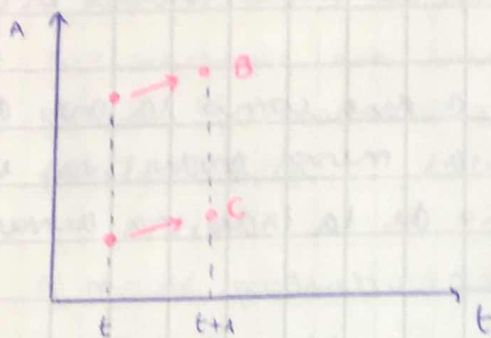 A
B
C
t
t+1
t